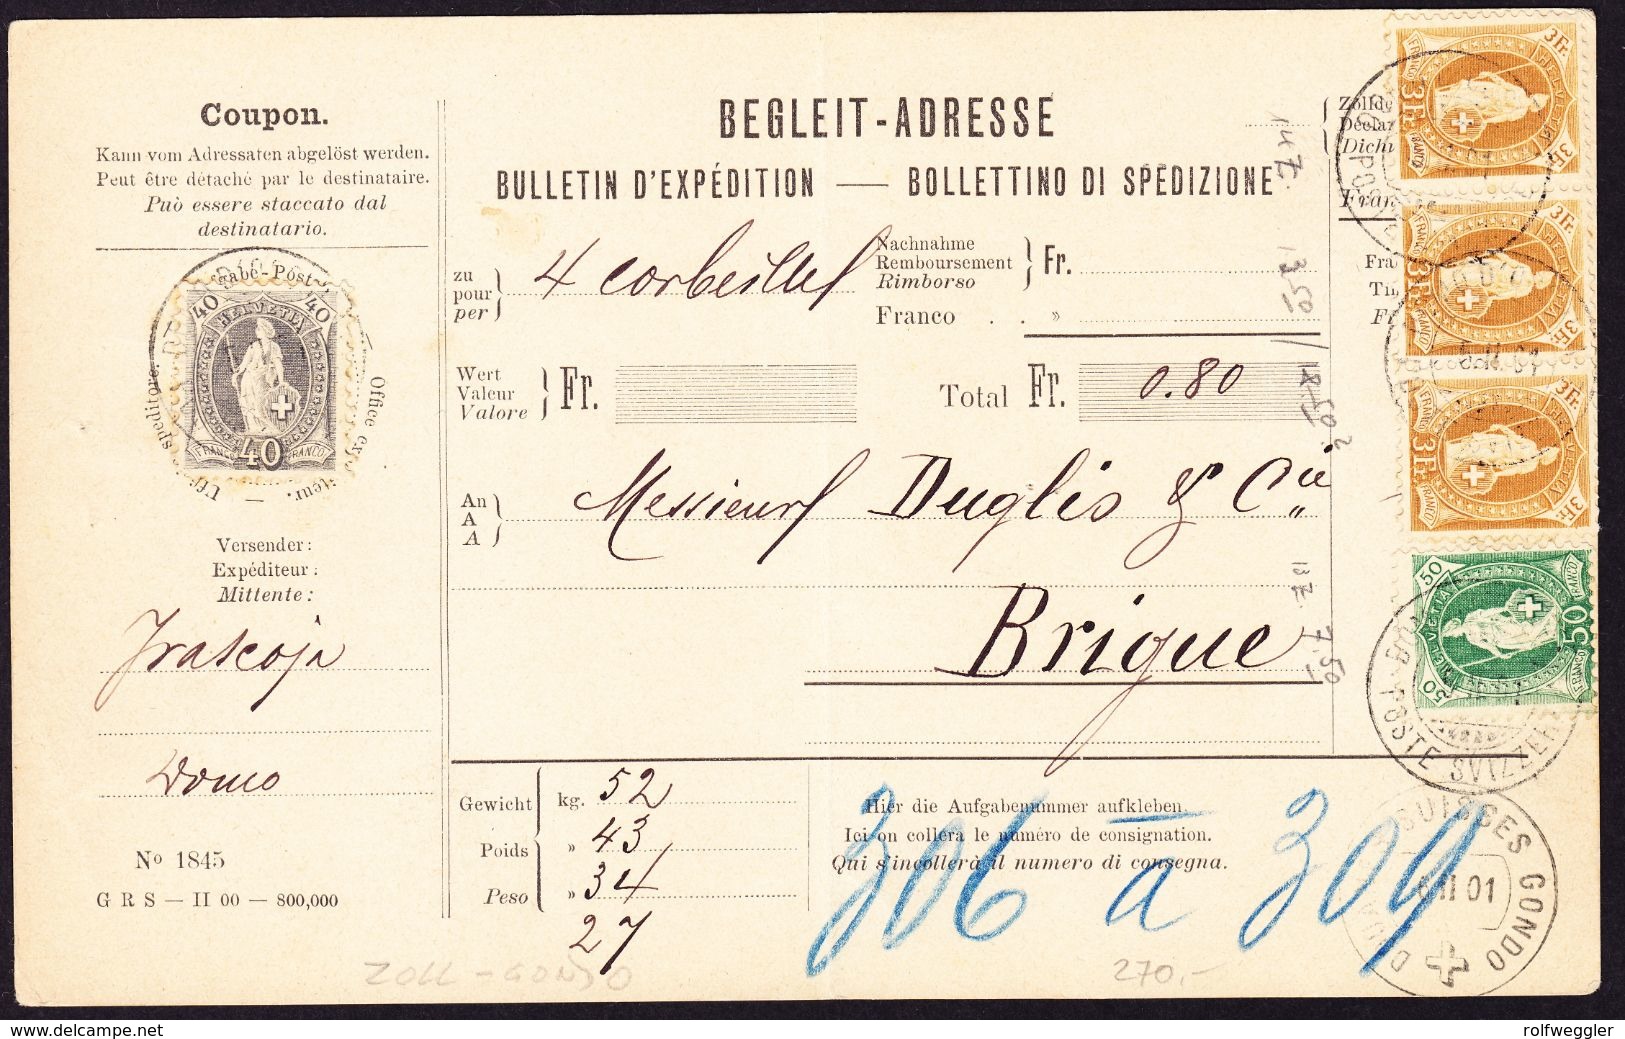 Coupon.
Kann vom Adressaten abgelöst werden.
Peut être détaché par le destinataire.
Può essere staccato dal
destinatario.
40 40
HELVETIA
40
FRANCO FRANCO
Versender:
Expéditeur:
Mittente:
Domo
No 1845
G R S — II 00 — 800,000
BEGLEIT-ADRESSE
BULLETIN D'EXPÉDITION — BOLLETTINO DI SPEDIZIONE
zu
pour
per
4 corbeilles
Nachnahme
Remboursement
Rimborso
Fr.
Franco . . »
Wert
Valeur
Valore
Fr.
Total Fr. 0.80
An
A
A
Messieurs Duglis & Cie
Brigue
Gewicht
Poids
Peso
kg. 52
» 43
» 34
27
Hier die Aufgabenummer aufkleben.
Ici on collera le numéro de consignation.
Qui s'incollerà il numero di consegna.
306 a 309
ZOLL - GONDO
270,-
147
7.50
3Fr. 3Fr.
FRANCO HELVETIA
3Fr. 3Fr.
FRANCO HELVETIA
3Fr. 3Fr.
FRANCO
50 50
HELVETIA
FRANCO
50
POSTE SVIZZERE
SUISSES GONDO
II 01
www.delcampe.net
rolfweggler